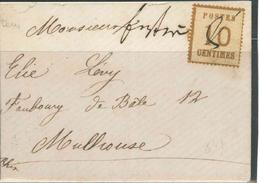 Monsieur
POSTES
10
CENTIMES
Elie Lévy
Faubourg de Bâle 12
Mulhouse